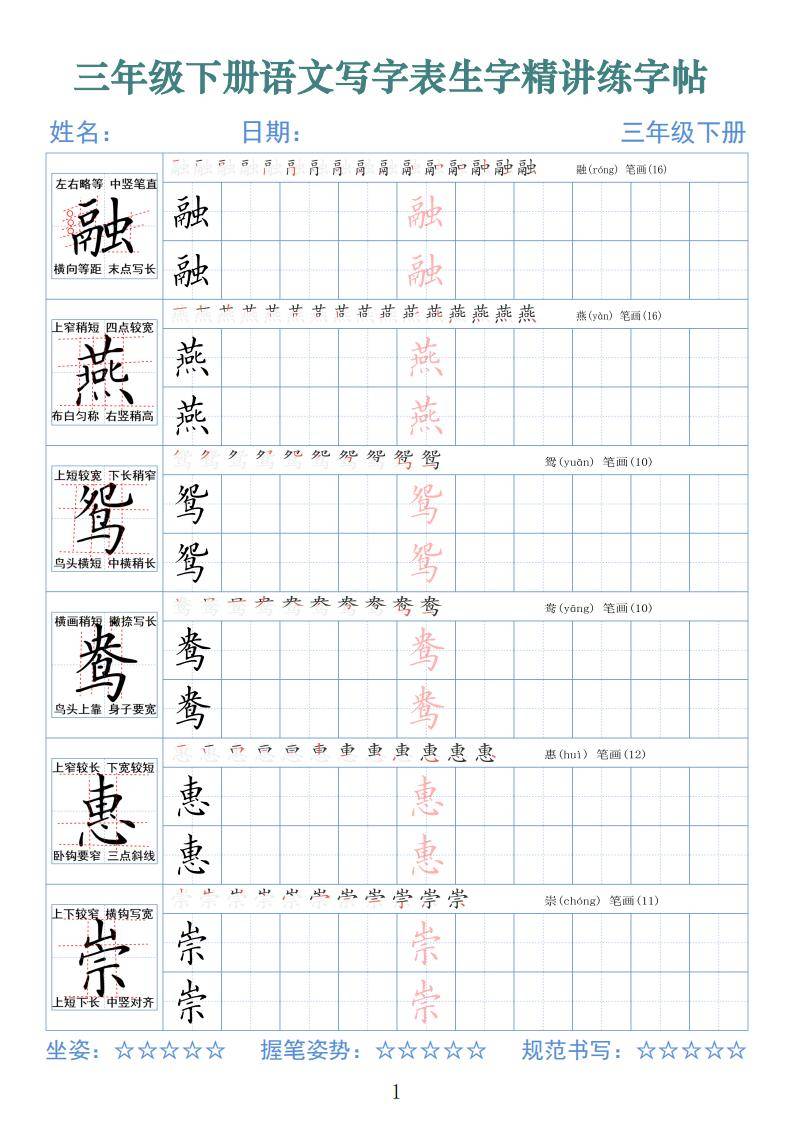 三年级下册语文写字表生字精讲练字帖
姓名： 日期： 三年级下册
融(róng) 笔画(16)
左右略等 中竖笔直
融
横向等距 末点写长
融 融
融 融
燕(yàn) 笔画(16)
上窄稍短 四点较宽
燕
布白匀称 右竖稍高
燕 燕
燕 燕
鸳(yuān) 笔画(10)
上短较宽 下长稍窄
鸳
鸟头横短 中横稍长
鸳 鸳
鸳 鸳
鸯(yāng) 笔画(10)
横画稍短 撇捺写长
鸯
鸟头上靠 身子要宽
鸯 鸯
鸯 鸯
惠(huì) 笔画(12)
上窄较长 下宽较短
惠
卧钩要窄 三点斜线
惠 惠
惠 惠
崇(chóng) 笔画(11)
上下较窄 横钩写宽
崇
上短下长 中竖对齐
崇 崇
崇 崇
坐姿：☆☆☆☆☆ 握笔姿势：☆☆☆☆☆ 规范书写：☆☆☆☆☆
1